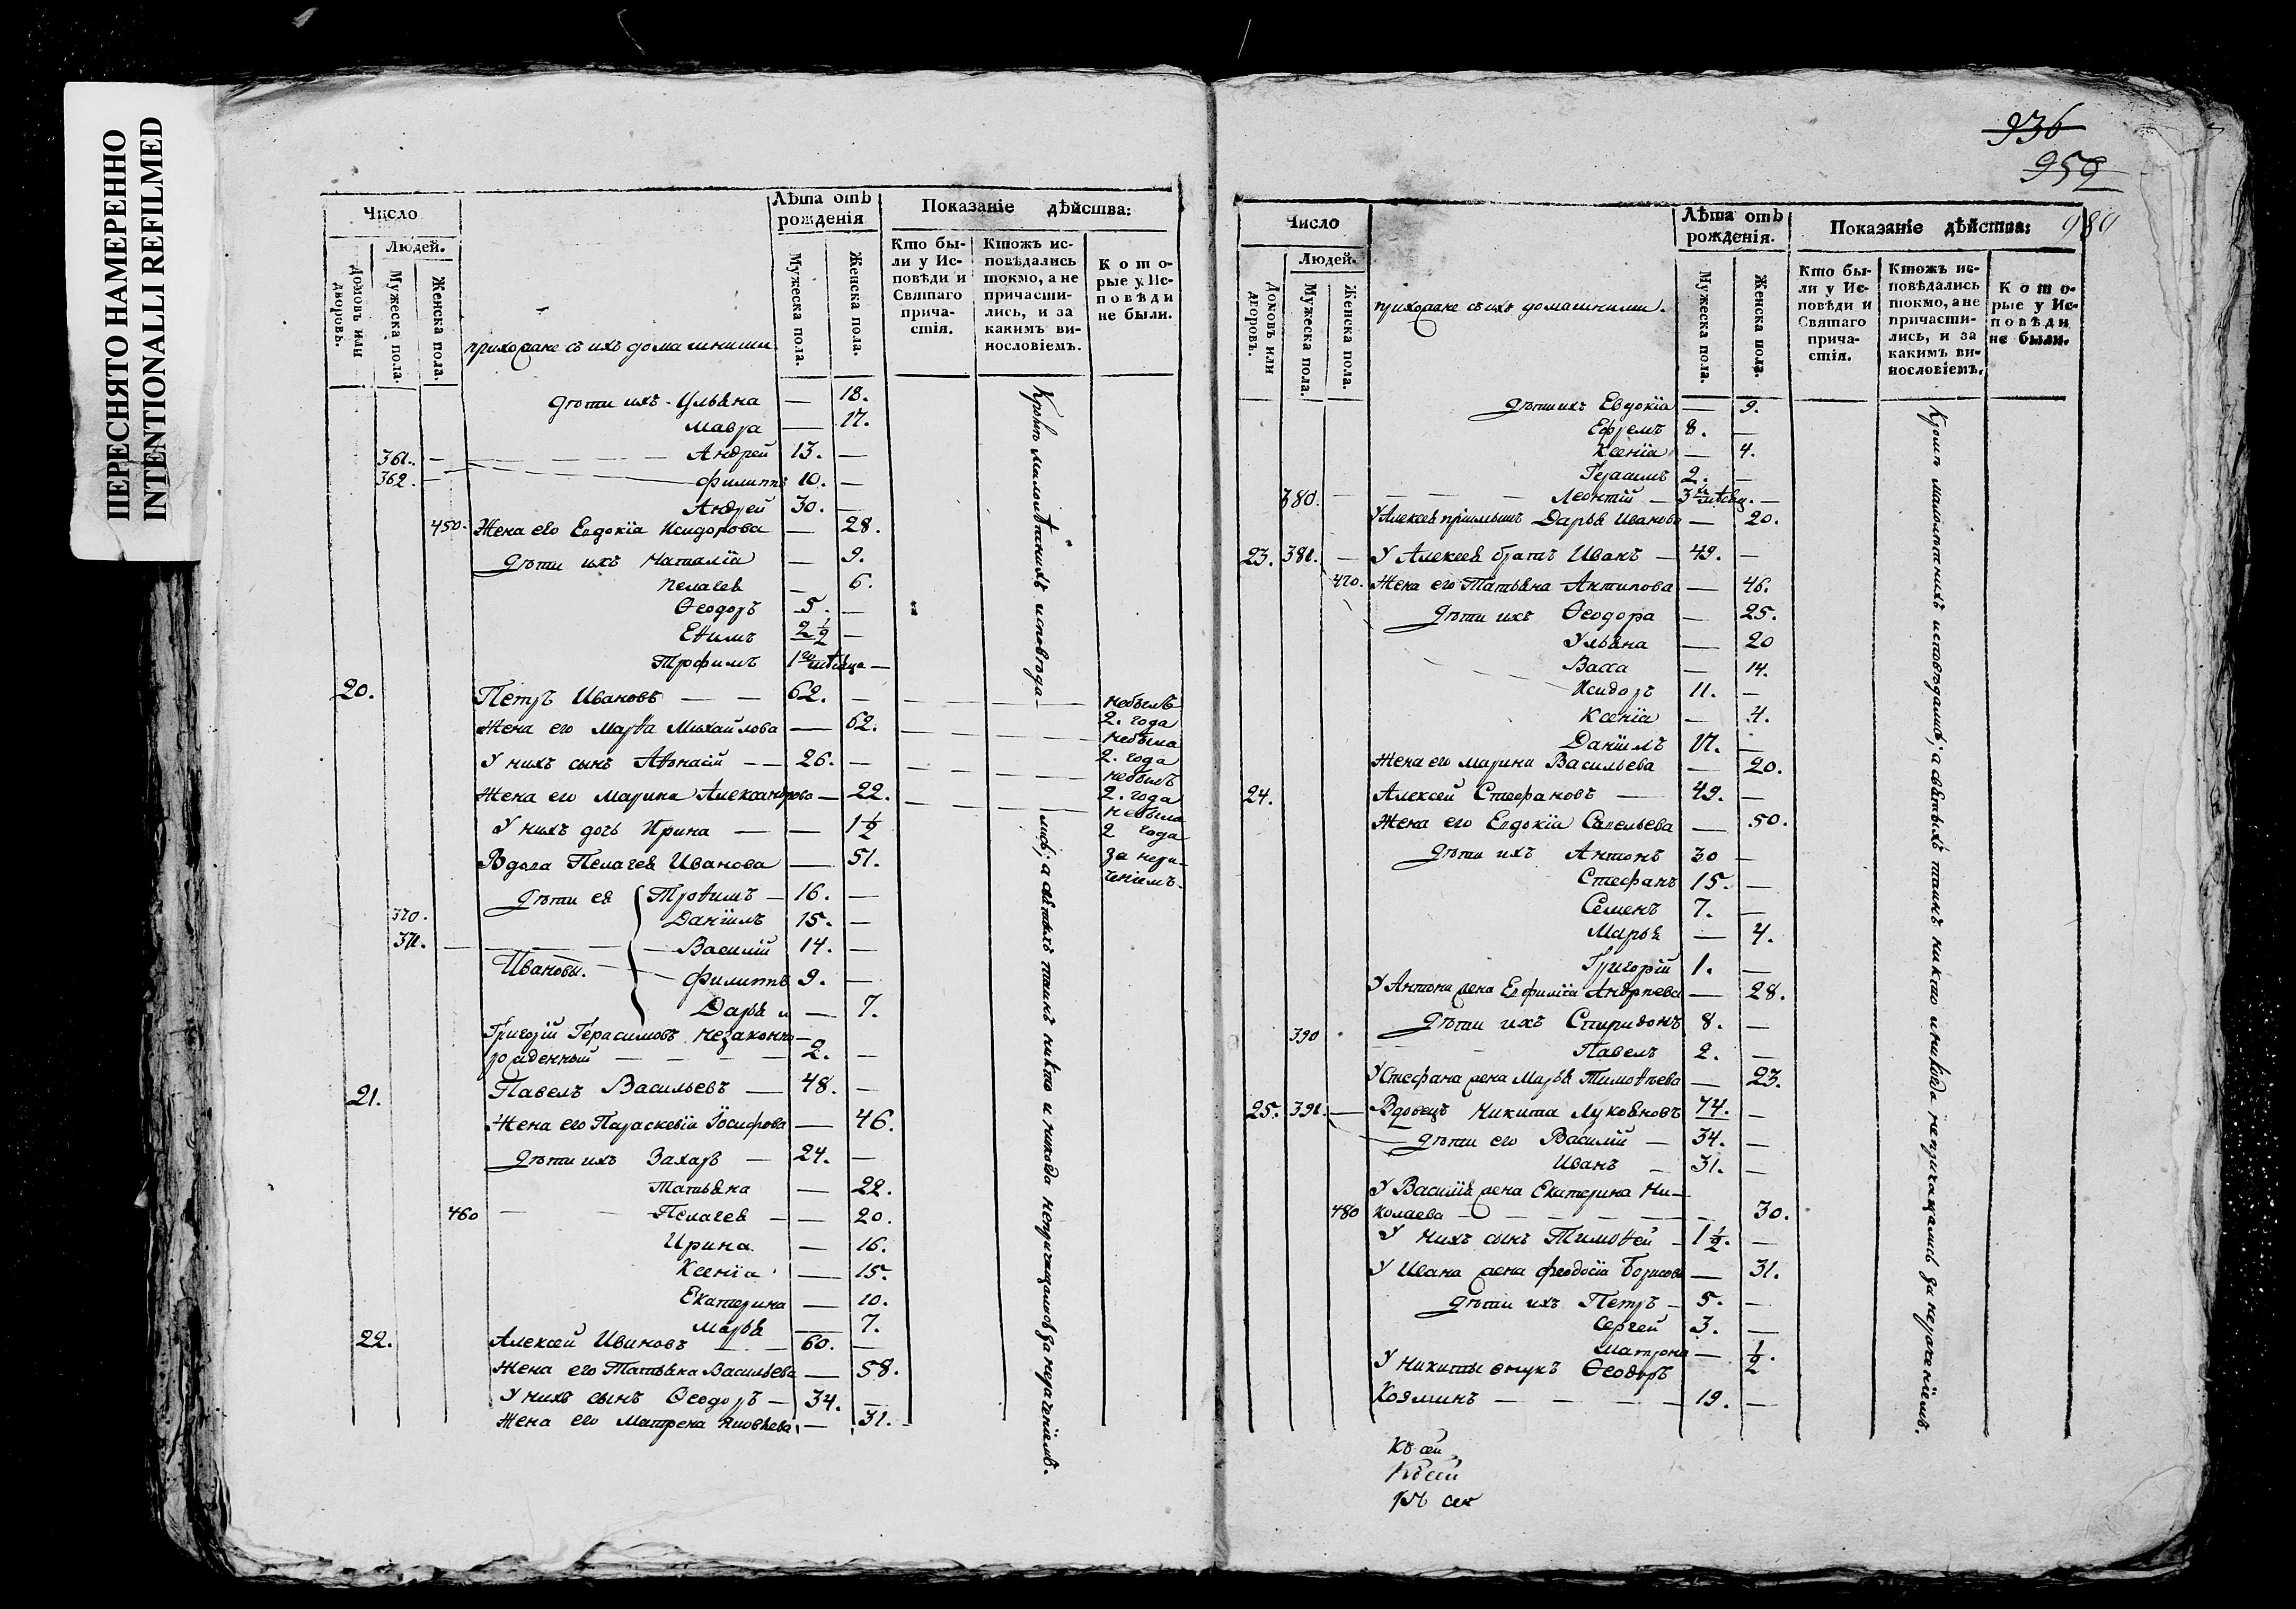 ПЕРЕСНЯТО НАМЕРЕННО
INTENTIONALLI REFILMED
Число
Лѣта отъ рожденія
Показаніе дѣйства:
Домовъ или дворовъ.
Людей.
Мужеска пола.
Женска пола.
прихожане съ ихъ домашними
Мужеска пола.
Женска пола.
Кто были у Исповѣди и Святаго причастія.
Ктожъ исповѣдались токмо, а не причастились, и за какимъ винословіемъ.
Которые у Исповѣди не были.
дѣти ихъ Ульяна — 18.
Мавра — 17.
361. — Андрей 13. —
362. — Филиппъ 10. —
Андрей 30. —
450. Жена его Евдокіа Исидорова — 28.
дѣти ихъ Наталіа — 9.
Пелагея — 6.
Ѳеодоръ 5. —
Еѳимъ 2 1/2 —
Трофимъ 1го мѣсяца —
20. Петръ Ивановъ — — 62. — небылъ 2. года
Жена его Марѳа Михайлова — 62. небыла 2. года
У нихъ сынъ Аѳонасій — — 26. — небылъ 2. года
Жена его Марина Александрова — 22. небыла 2 года
У нихъ дочь Ирина — — 1 1/2
Вдова Пелагея Иванова — 51. за нераченіемъ.
дѣти ея Троѳимъ — 16. —
370. Даніилъ 15. —
371. — Василій 14. —
Ивановы. — Филиппъ 9. —
Дарья и — 7.
Григорій Герасимовъ незаконно
рожденный — — — 2. —
21. Павелъ Васильевъ — 48. —
Жена его Параскевіа Іосифова — 46.
дѣти ихъ Захаръ — 24. —
Татьяна — 22.
460 — Пелагея — — 20.
Ирина — 16.
Ксеніа — 15.
Екатерина — 10.
Марья — 7.
22. Алексей Ивановъ — — 60. —
Жена его Татьяна Васильева — 58.
У нихъ сынъ Ѳеодоръ — 34. —
Жена его Матрена Яковлева — 31.
Кромѣ малолѣтнихъ исповѣдались; а святыхъ таинъ никто и никогда непричащались за нераченіемъ.
936
959
989
Число
Лѣта отъ рожденія.
Показаніе дѣйства:
Домовъ или дворовъ.
Людей.
Мужеска пола.
Женска пола.
прихожане съ ихъ домашними.
Мужеска пола.
Женска пола.
Кто были у Исповѣди и Святаго причастія.
Ктожъ исповѣдались токмо, а не причастились, и за какимъ винословіемъ.
Которые у Исповѣди не были.
дѣти ихъ Евдокіа — 9.
Ефремъ 8. —
Ксеніа — 4.
Герасимъ 2. —
380. — Леонтій — 3 мѣсяц. —
У Алексея пріимышъ Дарья Иванова — 20.
23. 381. — У Алексея братъ Иванъ — 49. —
470. Жена его Татьяна Антипова — 46.
дѣти ихъ Ѳеодора — 25.
Ульяна — 20
Васса — 14.
Исидоръ 11. —
Ксеніа — 4.
Даніилъ 17. —
Жена его Марина Васильева — 20.
24. Алексей Стефановъ — 49. —
Жена его Евдокіа Савельева — 50.
дѣти ихъ Антонъ 30 —
Стефанъ 15. —
Семенъ 7. —
Марья — 4.
Григорій 1. —
У Антона жена Евфиміа Андреева — 28.
390 дѣти ихъ Спиридонъ 8. —
Павелъ 2. —
У Стефана жена Марья Тимоѳеева — 23.
25. 391. — Вдовецъ Никита Лукояновъ 74. —
дѣти его Василій — 34. —
Иванъ — 31. —
У Василія жена Екатерина Ни-
480 колаева — — — — 30.
У нихъ сынъ Тимоѳей — 1 1/2. —
У Ивана жена Феодосіа Борисова — 31.
дѣти ихъ Петръ — 5. —
Сергей 3. —
Матрона — 1/2.
У Никиты внукъ Ѳеодоръ
Козминъ — — — 19. —
Кромѣ малолѣтнихъ исповѣдались; а святыхъ таинъ никто и никогда непричащались за нераченіемъ.
Къ сей
Къ сей
Къ сей